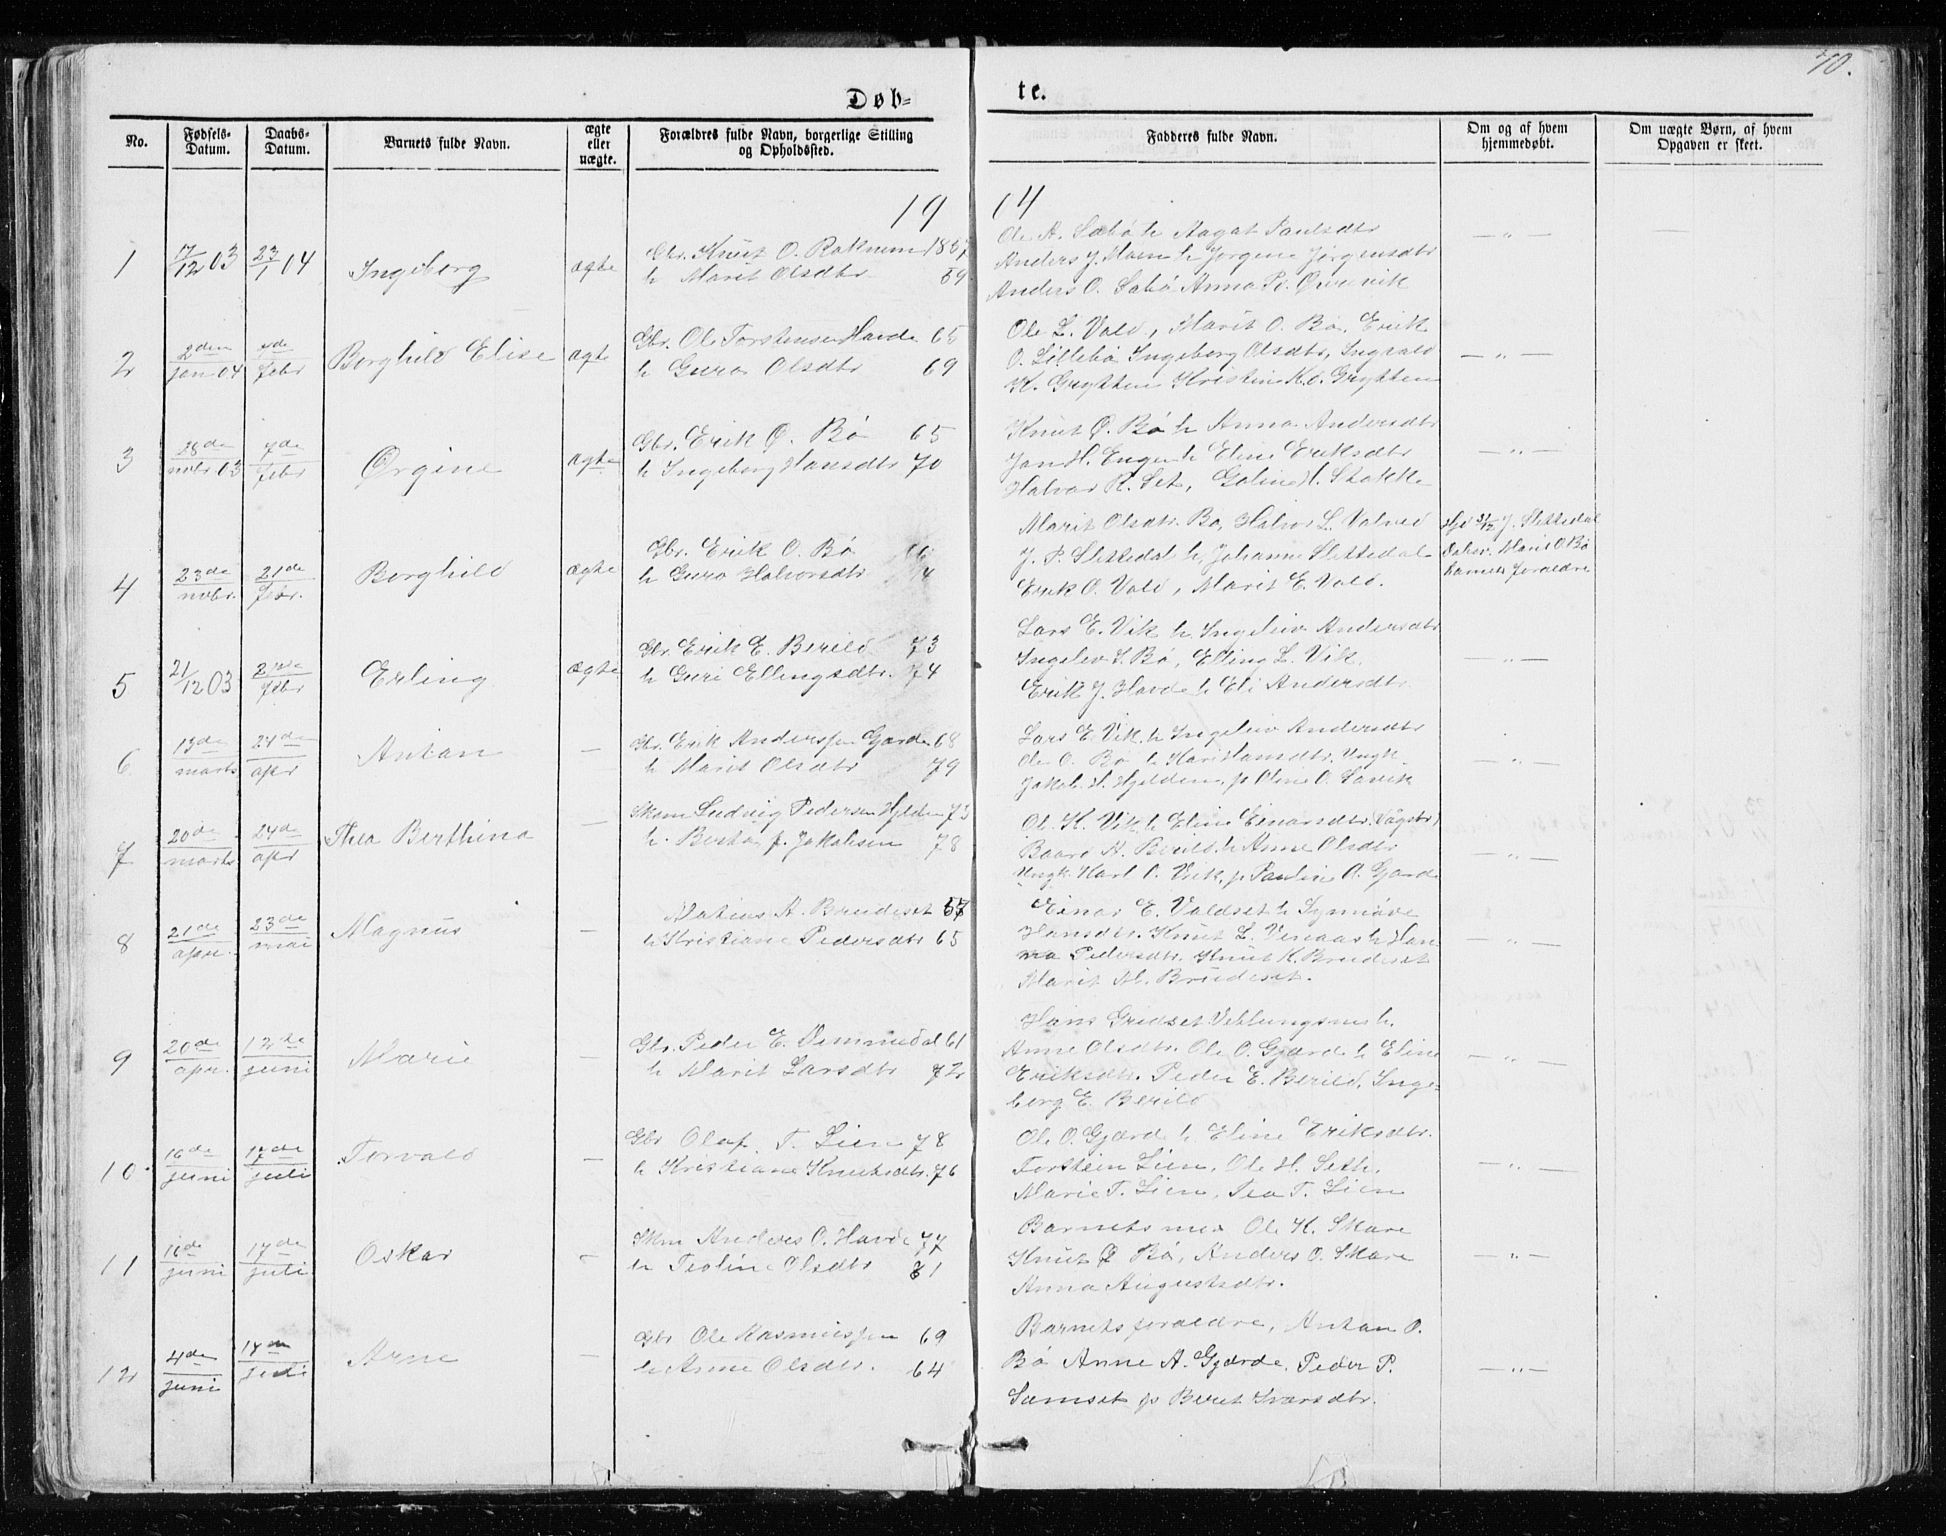 70.
Døb-
te.
No.
Fødsels-
Datum.
Daabs-
Datum.
Barnets fulde Navn.
ægte
eller
uægte.
Forældres fulde Navn, borgerlige Stilling
og Opholdssted.
Faddernes fulde Navn.
Om og af hvem
hjemmedøbt.
Om uægte Børn, af hvem
Opgaven er skeet.
19
04
1
17/12 03
23/1 04
Ingeborg
ægte
Gbr. Knut O. Raknem 1857
h Marit Olsdtr 59
Ole A. Sæbø h Aagat Paulsdtr
Anders J. Moen h Jørgine Jørgensdtr
Anders O. Sæbø Anna P. Øvrevik
— " —
2
2den
jan 04
7de
febr
Borghild Elise
ægte
Gbr. Ole Torstensen Havde 65
h Guro Olsdtr 69
Ole L. Vold, Marit O. Bø, Erik
O. Lillebø Ingeborg Olsdtr, Ingvald
K. Grytten Kristine K.d. Grytten
— " —
3
28de
novbr 03
7de
febr
Ørgine
ægte
Gbr. Erik Ø. Bø 65
h Ingeborg Hansdtr 70
Knut Ø. Bø h Anna Andersdtr
Jon H. Enge h Eline Eriksdtr
Halvar R. Set, Goline H. Stokke
— " —
4
23de
novbr.
21de
febr.
Borghild
ægte
Gbr. Erik O. Bø 66
h Guro Halvorsdtr 74
Marit Olsdtr. Bø, Halvor L. Volved
J. P. Slettedal h Johanne Slettedal
Erik O. Vold, Marit E. Vold.
Hjd 31/12 J. Slettedal
Marit O Bø
barnets forældre
5
21/12 03
febr
Erling
ægte
Gbr. Erik E. Berild 73
h Guri Ellingsdtr. 74
Lars E. Vik h Ingeleiv Andersdtr
Ingelev S. Bø, Elling L. Vik.
Erik J. Havde h Eli Andersdtr.
— " —
6
13de
marts
24de
apr
Antan
—
Gbr. Erik Anderssen Gjærde 68
h Marit Olsdtr 79
Lars E. Vik h Ingeleiv Andersdtr
Ole O. Bø h Kari Hansdtr. Ungk.
Jakob H. Hjelden, p Oline O. Sævik
— " —
7
20de
marts
24de
apr
Thea Berthina
—
Skom Ludvig Pedersen Hjelden 73
h. Berta f. Jakobsen 78
Ole K. Vik h Eline Einarsdtr. (Vågstr)
Baard A. Berild h Anne Olsdtr
Ungk Karl O. Vik, p Pauline O. Gjærde
— " —
8
21de
apr.
23de
mai
Magnus
—
Matias A. Brudeset 57
h Kristiane Pedersdtr 65
Einar E. Voldset h Synnøve
Hansdtr. Knut L. Venaas h Han
na Pedersdtr. Knut K. Brudeset
Marit M. Brudeset.
— " —
9
20de
apr.
12te
juni
Marie
—
Gbr. Peder E. Dimmedal 61
h Marit Larsdtr 72
Hans Gridset Veblungsnes h.
Anne Olsdtr. Ole O. Gjærde h Eline
Eriksdtr. Peder E. Berild, Inge-
borg E. Berild
— " —
10
16de
juni
17de
juli
Torvald
—
Gbr Olaf T. Lien 78
h Kristiane Knutsdtr. 76
Ole O. Gjærde h Eline Eriksdtr.
Torstein Lien, Ole H. Seth,
Marie T. Lien, Tea T. Lien
— " —
11
16de
juni
17de
juli
Oskar
—
Skm Anders O. Havde 77
h Teoline Olsdtr 81
Barnets mor Ole K. Skare
Knut Ø Bø, Anders O. Skare
Anna Augustsdtr.
— " —
12
4de
juni
juli
Arne
—
Gbr Ole Rasmussen 69
h Anne Olsdtr. 64
Barnets forældre, Antan O.
Bø Anne A. Gjærde, Peder P.
Samset p Beret Ivarsdtr.
— " —